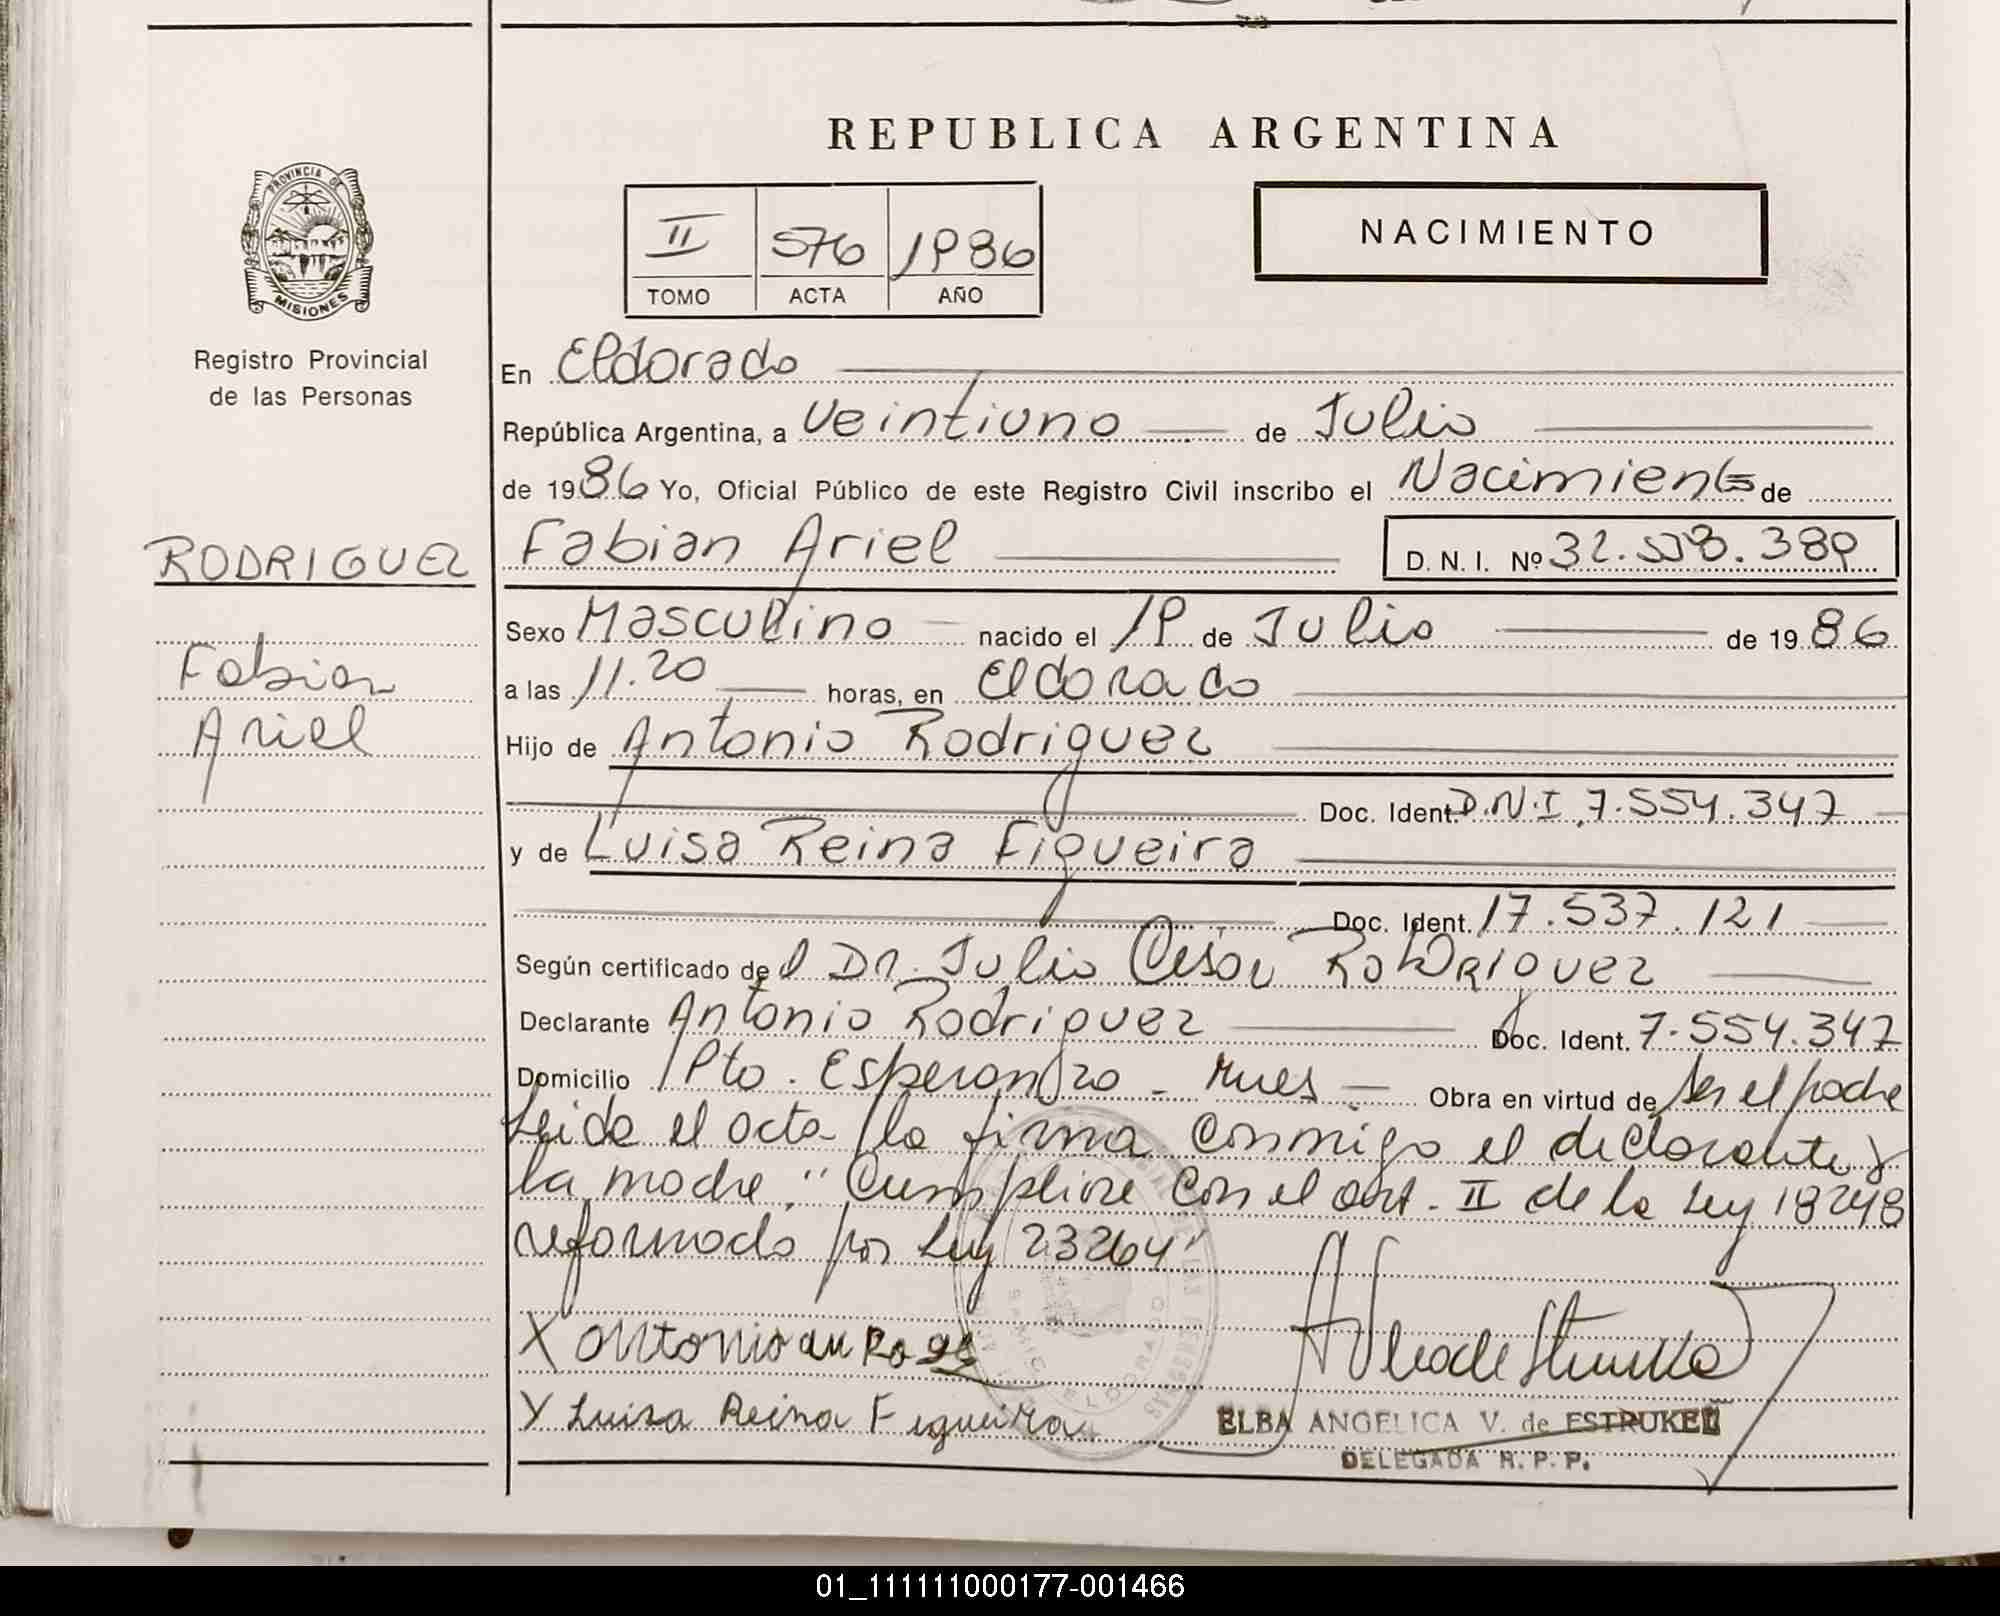 REPUBLICA ARGENTINA
PROVINCIA DE
MISIONES
Registro Provincial
de las Personas
II 576 1986
TOMO ACTA AÑO
NACIMIENTO
En Eldorado
República Argentina, a Veintiuno de Julio
de 1986 Yo, Oficial Público de este Registro Civil inscribo el Nacimiento de
RODRIGUEZ
Fabian Ariel D. N. I. Nº 32.558.389
Sexo Masculino nacido el 19 de Julio de 1986
Fabian
a las 11.20 horas, en Eldorado
Ariel
Hijo de Antonio Rodriguez
Doc. Ident. D.N.I. 7.554.347
y de Luisa Reina Figueira
Doc. Ident. 17.537.121
Según certificado del Dr. Julio Cesar Rodriguez
Declarante Antonio Rodriguez Doc. Ident. 7.554.347
Domicilio Pto. Esperanza - Mnes Obra en virtud de ser el padre
Leida el acta la firma conmigo el declarante y
la madre. "Cumplire con el art. II de la Ley 18248
reformada por Ley 23264"
X Antonio
Y Luisa Reina Figueira
ELBA ANGELICA V. de ESTRUKEL
DELEGADA R. P. P.
01_111111000177-001466